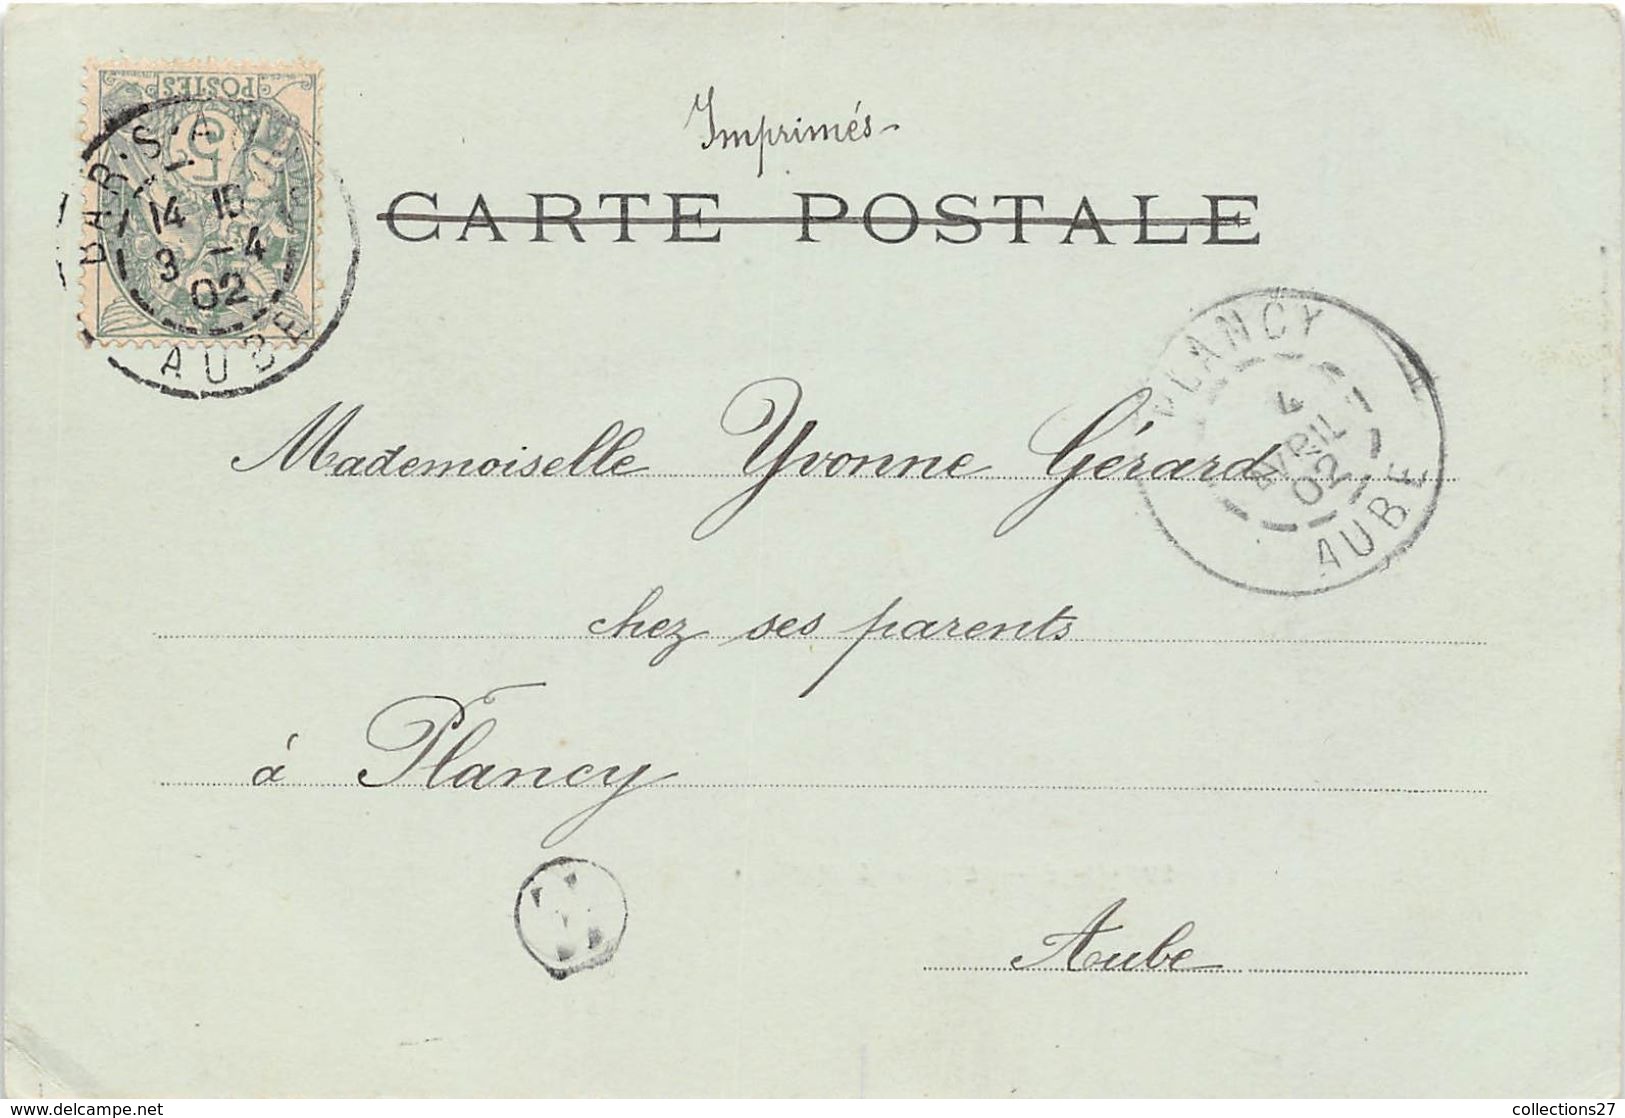 POSTES
5
BAR-S-AUBE
14 15
3 -4
02
AUBE
Imprimés
CARTE POSTALE
PLANCY
4
AVRIL
02
AUBE
Mademoiselle Yvonne Gérard
chez ses parents
à Plancy
Aube
www.delcampe.net
collections27